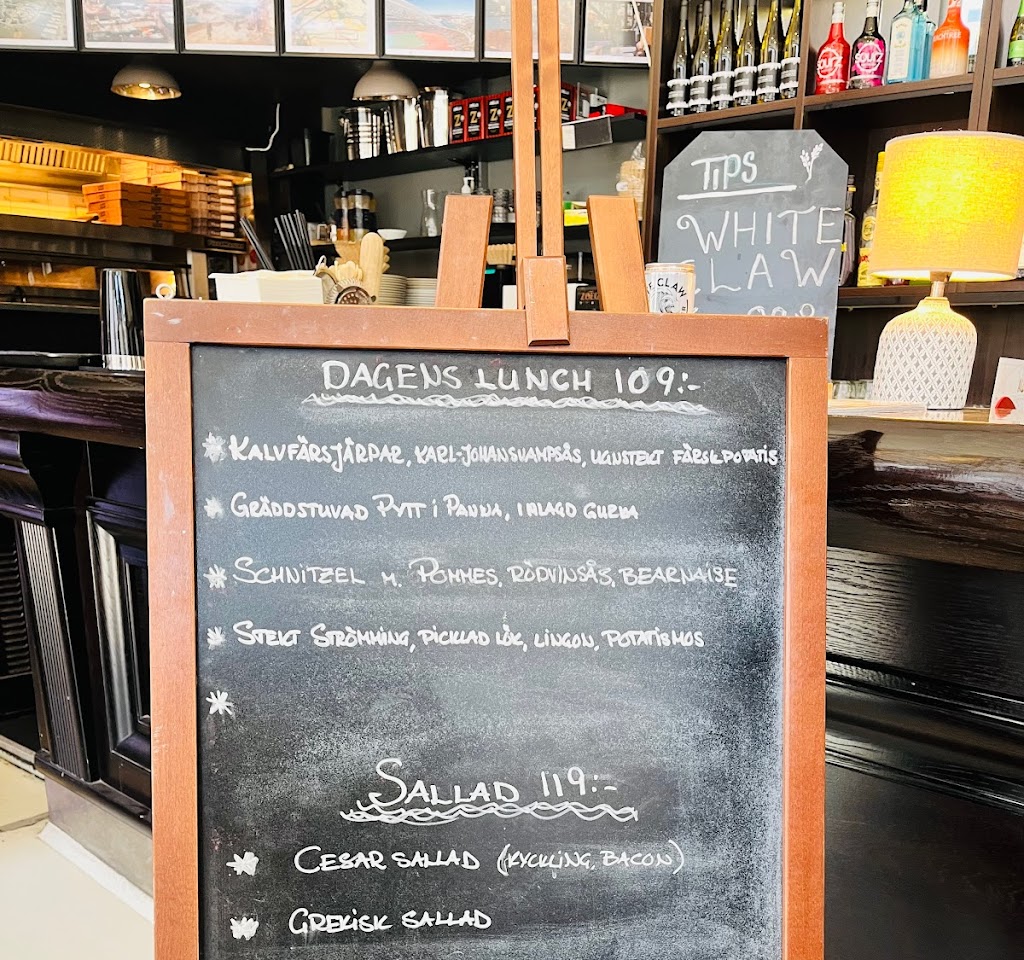 TIPS
WHITE
CLAW
CLAW
SOURZ
SOURZ
DAGENS LUNCH 109:-
KALVFÄRSJÄRPAR, KARL-JOHANSVAMPSÅS, UGNSTEKT FÄRSKPOTATIS
GRÄDDSTUVAD PYTT I PANNA, INLAGD GURKA
SCHNITZEL M. POMMES, RÖDVINSÅS, BEARNAISE
STEKT STRÖMMING, PICKLAD LÖK, LINGON, POTATISMOS
SALLAD 119:-
CESAR SALLAD (KYCKLING, BACON)
GREKISK SALLAD